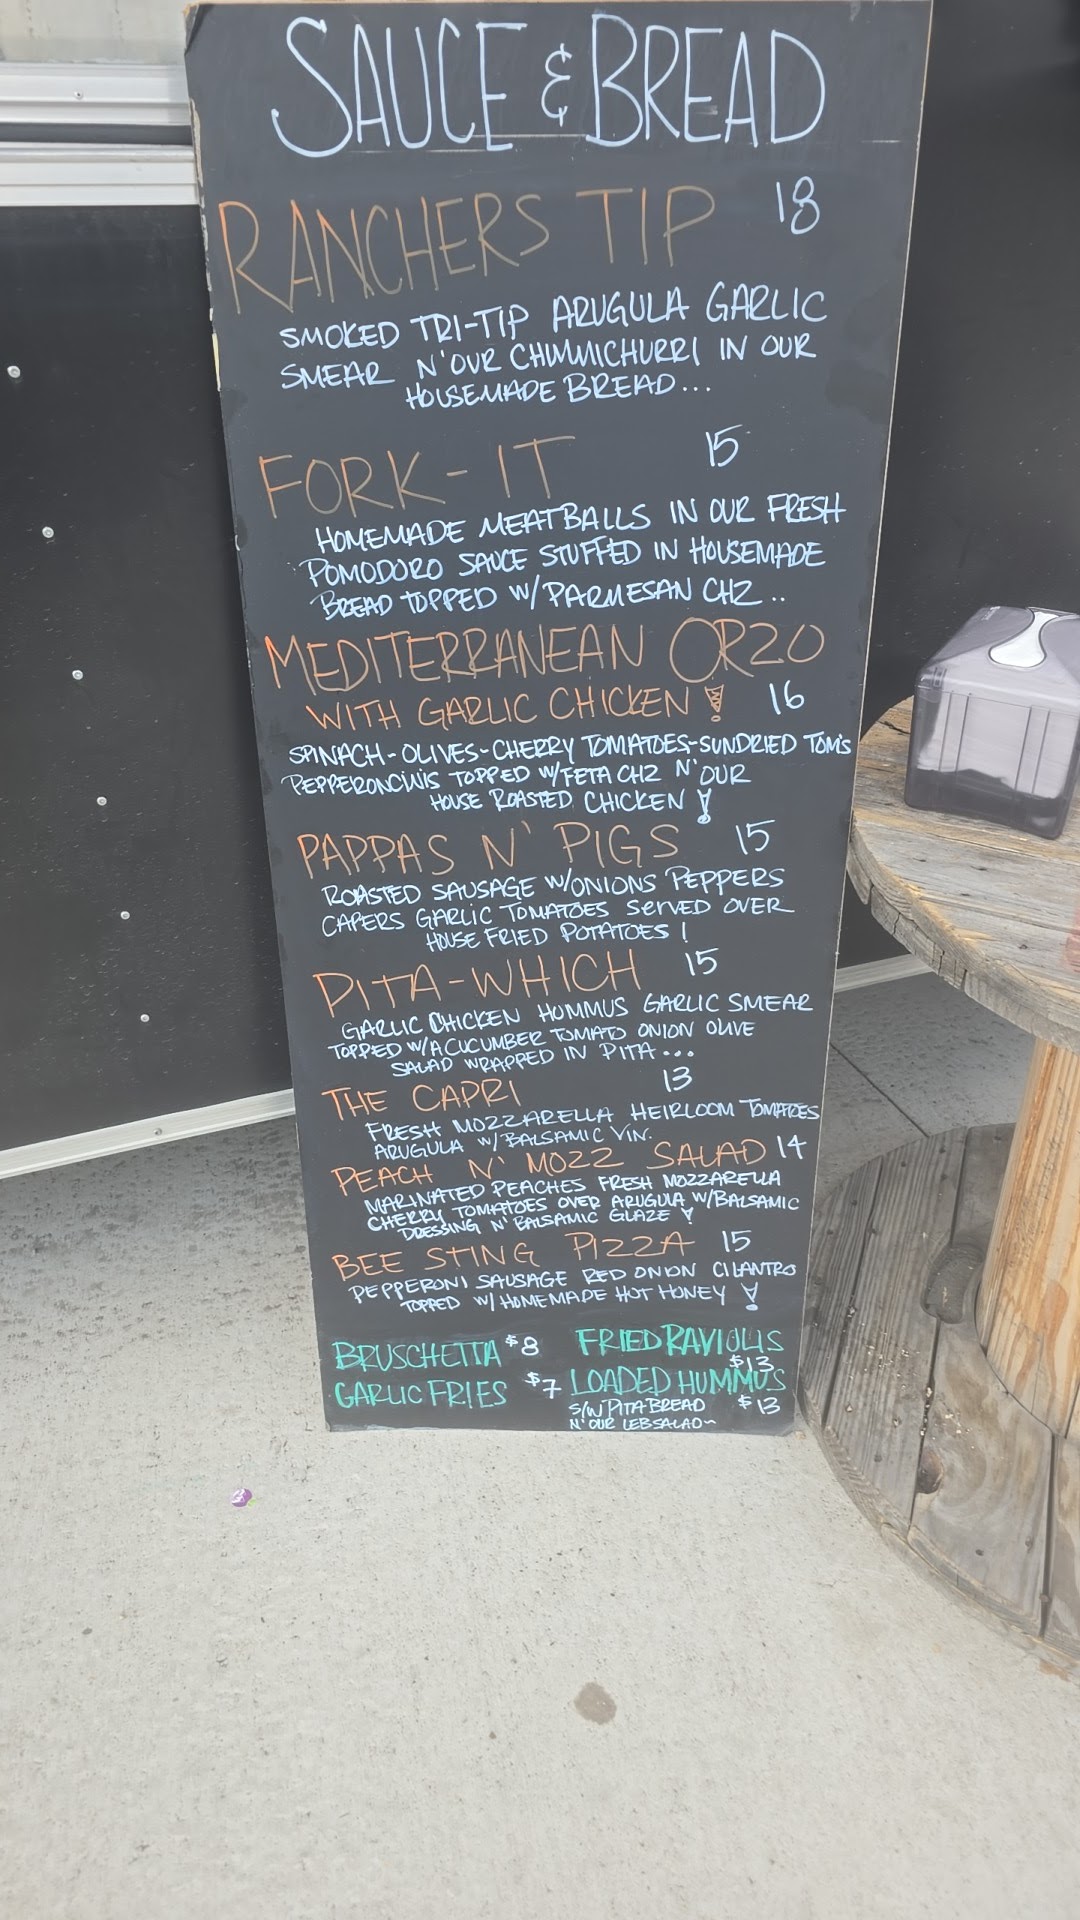 SAUCE & BREAD
RANCHERS TIP 18
SMOKED TRI-TIP ARUGULA GARLIC
SMEAR N'OUR CHIMMICHURRI IN OUR
HOUSEMADE BREAD...
FORK-IT 15
HOMEMADE MEATBALLS IN OUR FRESH
POMODORO SAUCE STUFFED IN HOUSEMADE
BREAD TOPPED W/PARMESAN CHZ..
MEDITERRANEAN ORZO
WITH GARLIC CHICKEN! 16
SPINACH-OLIVES-CHERRY TOMATOES-SUNDRIED TOM'S
PEPPERONCINIS TOPPED W/FETA CHZ N'OUR
HOUSE ROASTED CHICKEN!
PAPPAS N' PIGS 15
ROASTED SAUSAGE W/ONIONS PEPPERS
CAPERS GARLIC TOMATOES SERVED OVER
HOUSE FRIED POTATOES!
PITA-WHICH 15
GARLIC CHICKEN HUMMUS GARLIC SMEAR
TOPPED W/A CUCUMBER TOMATO ONION OLIVE
SALAD WRAPPED IN PITA...
THE CAPRI 13
FRESH MOZZARELLA HEIRLOOM TOMATOES
ARUGULA W/BALSAMIC VIN.
PEACH N' MOZZ SALAD 14
MARINATED PEACHES FRESH MOZZARELLA
CHERRY TOMATOES OVER ARUGULA W/BALSAMIC
DRESSING N' BALSAMIC GLAZE!
BEE STING PIZZA 15
PEPPERONI SAUSAGE RED ONION CILANTRO
TOPPED W/HOMEMADE HOT HONEY!
BRUSCHETTA $8
GARLIC FRIES $7
FRIED RAVIOLIS
$13
LOADED HUMMUS
S/W PITA BREAD $13
N' OUR LEB SALAD~